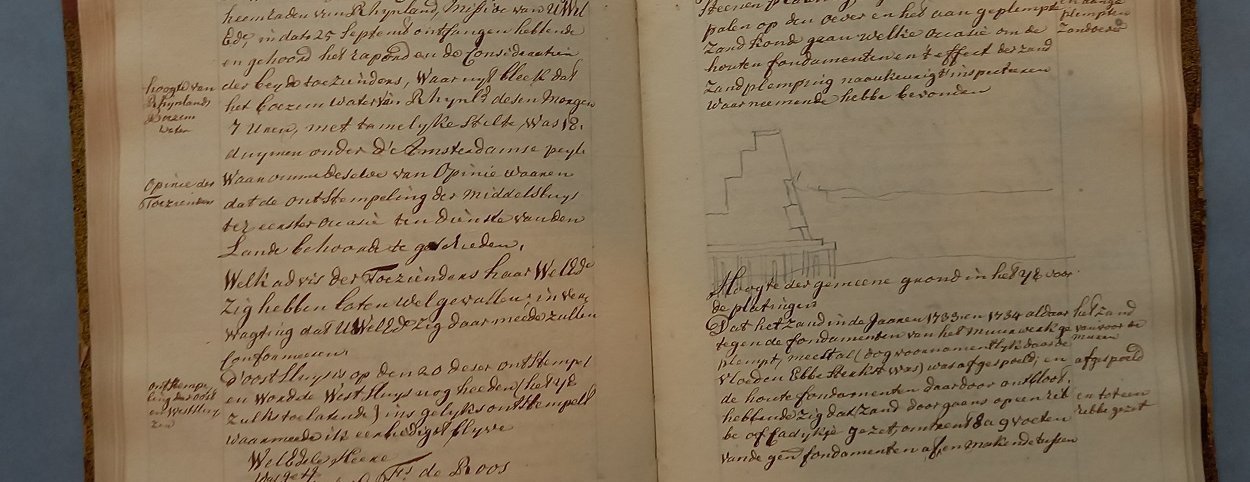 heemraden van Rhynland, Missive van UWel
Ed, in dato 25 Septemb ontfangen hebbende
en gehoord het raport en de Consideratien
der beyde toezienders, Waar uyt bleek dat
het boezem water van Rhynld desen morgen
7 Uuren, met tamelyke stilte, was 18
duymen onder d'Amsterdamse peyl
Waaromme deselve van Opinie waaren
dat de ontstempeling der middelsluys
ter eerster ocasie ten dienste van den
Lande behoorde te geschieden,
Welk advis der Toezienders haar WelEde
zig hebben laten welgevallen, in ver,
wagting dat UWelEd zig daar meede zullen
Conformeeren
d'oostsluys is op den 20 deser ontstempt
en worde de Westsluys nog heeden (het tyd
zulks toelatende) ins gelyks ontstempelt
waarmeede ik eerbiedigst blyve
WelEdele Heere
was get
Fs de Roos
hoogte van
Rhynlands
Boezem
water
Opinie der
Toezienders
ontstempe,
ling der oost
en Westsluy
zen
palen op den oever en het aan geplempt
zand konde gaan welke ocasie om de
houten fondamenten en 't effect der zand
zandplemping naaukeurigt inspecteeren
waarneemende hebbe bevonden
plempten
zandoever
Hoogte der gemeene grond in het YE voor
de platingen
Dat het zand in de Jaaren 1733 en 1734 aldaar
tegen de fondamenten van het muurwerk ge
plempt, meest al (dog voornamentlyk daar de
vloed en Ebbe sterkst was) was afgespoeld, en
de houte fondamenten daar door ontbloot,
hebbende zig dat zand doorgaens op een ret
be of ladykje gezet, omtrent 8 a 9 voeten
van de gen fondamenten af, en makende tussen
het zand
van voor de
muren
afgespoeld
en tot een
rebbe gezet